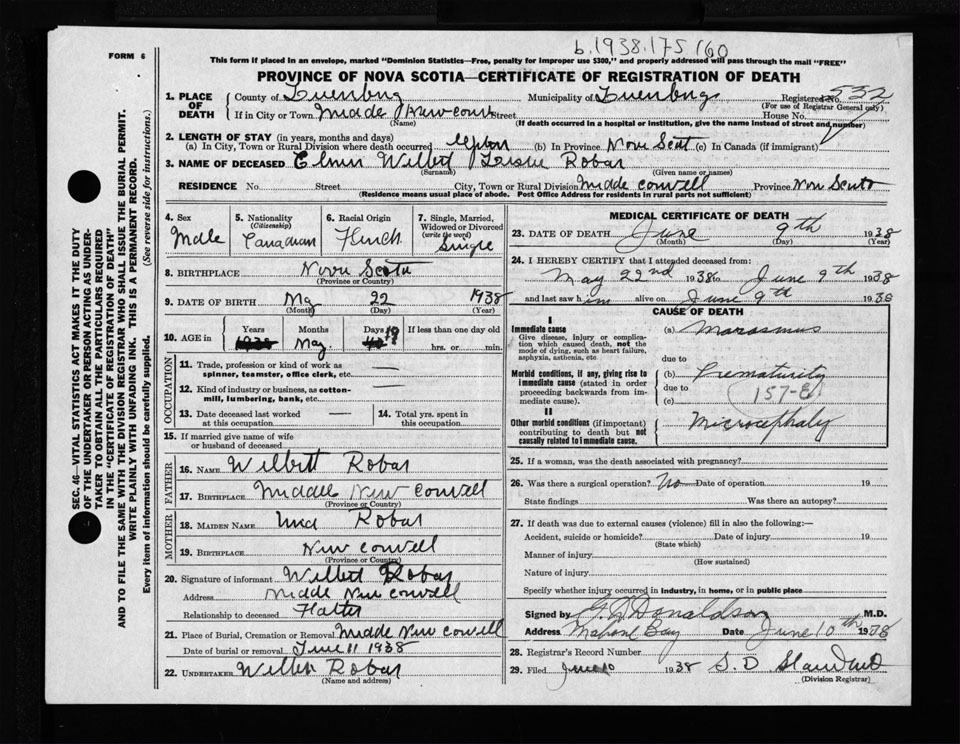 b.1938.175160
FORM 6
This form if placed in an envelope, marked "Dominion Statistics—Free, penalty for improper use $300," and properly addressed will pass through the mail "FREE"
PROVINCE OF NOVA SCOTIA—CERTIFICATE OF REGISTRATION OF DEATH
SEC. 46—VITAL STATISTICS ACT MAKES IT THE DUTY
OF THE UNDERTAKER OR PERSON ACTING AS UNDER-
TAKER TO OBTAIN ALL THE PARTICULARS REQUIRED
IN THE "CERTIFICATE OF REGISTRATION OF DEATH"
AND TO FILE THE SAME WITH THE DIVISION REGISTRAR WHO SHALL ISSUE THE BURIAL PERMIT.
WRITE PLAINLY WITH UNFADING INK. THIS IS A PERMANENT RECORD.
Every item of information should be carefully supplied. (See reverse side for instructions.)
1. PLACE OF DEATH
County of Luenburg Municipality of Luenburg Registered No. 532
(For use of Registrar General only)
If in City or Town Middle New cornwell Street House No.
(Name) (If death occurred in a hospital or institution, give the name instead of street and number)
2. LENGTH OF STAY (in years, months and days)
(a) In City, Town or Rural Division where death occurred (b) In Province Nova Scot (c) In Canada (if immigrant)
3. NAME OF DECEASED Elmer Wilbert Leslie Robar
(Surname) (Given name or names)
RESIDENCE No. Street City, Town or Rural Division Midde conwell Province Nova Scota
(Residence means usual place of abode. Post Office Address for residents in rural parts not sufficient)
4. Sex Male
5. Nationality (Citizenship) Canadian
6. Racial Origin
7. Single, Married, Widowed or Divorced (write the word) Single
8. BIRTHPLACE Nova Scota
(Province or Country)
9. DATE OF BIRTH May 22 1938
(Month) (Day) (Year)
10. AGE in Years Months Days If less than one day old
1938 May 19 hrs. or min.
OCCUPATION
11. Trade, profession or kind of work as spinner, teamster, office clerk, etc. —
12. Kind of industry or business, as cotton-mill, lumbering, bank, etc. —
13. Date deceased last worked at this occupation —
14. Total yrs. spent in this occupation
15. If married give name of wife or husband of deceased
FATHER
16. NAME Wilbert Robar
17. BIRTHPLACE Middle New Conwell
(Province or Country)
MOTHER
18. MAIDEN NAME Robar
19. BIRTHPLACE New conwell
(Province or Country)
20. Signature of informant Wilbert Robar
Address Midde New conwell
Relationship to deceased Father
21. Place of Burial, Cremation or Removal Midde New Conwell
Date of burial or removal June 11 1938
22. UNDERTAKER Wilber Robar
(Name and address)
MEDICAL CERTIFICATE OF DEATH
23. DATE OF DEATH June 9th 1938
(Month) (Day) (Year)
24. I HEREBY CERTIFY that I attended deceased from:
May 22nd 1938 to June 9th 1938
and last saw him alive on June 9th 1938
CAUSE OF DEATH
I
Immediate cause
Give disease, injury or complication which caused death, not the mode of dying, such as heart failure, asphyxia, asthenia, etc.
(a) Marasmus
due to
Morbid conditions, if any, giving rise to immediate cause (stated in order proceeding backwards from immediate cause).
(b) Prematurity
due to
(c)
157-E
II
Other morbid conditions (if important) contributing to death but not causally related to immediate cause.
Microcephaly
25. If a woman, was the death associated with pregnancy?
26. Was there a surgical operation? No Date of operation 19
State findings Was there an autopsy?
27. If death was due to external causes (violence) fill in also the following:—
Accident, suicide or homicide? Date of injury 19
(State which)
Manner of injury
(How sustained)
Nature of injury
Specify whether injury occurred in industry, in home, or in public place
Signed by G. D. Donaldson M.D.
Address Mahone Bay Date June 10th 1938
28. Registrar's Record Number
29. Filed June 10 1938 S. D
(Division Registrar)